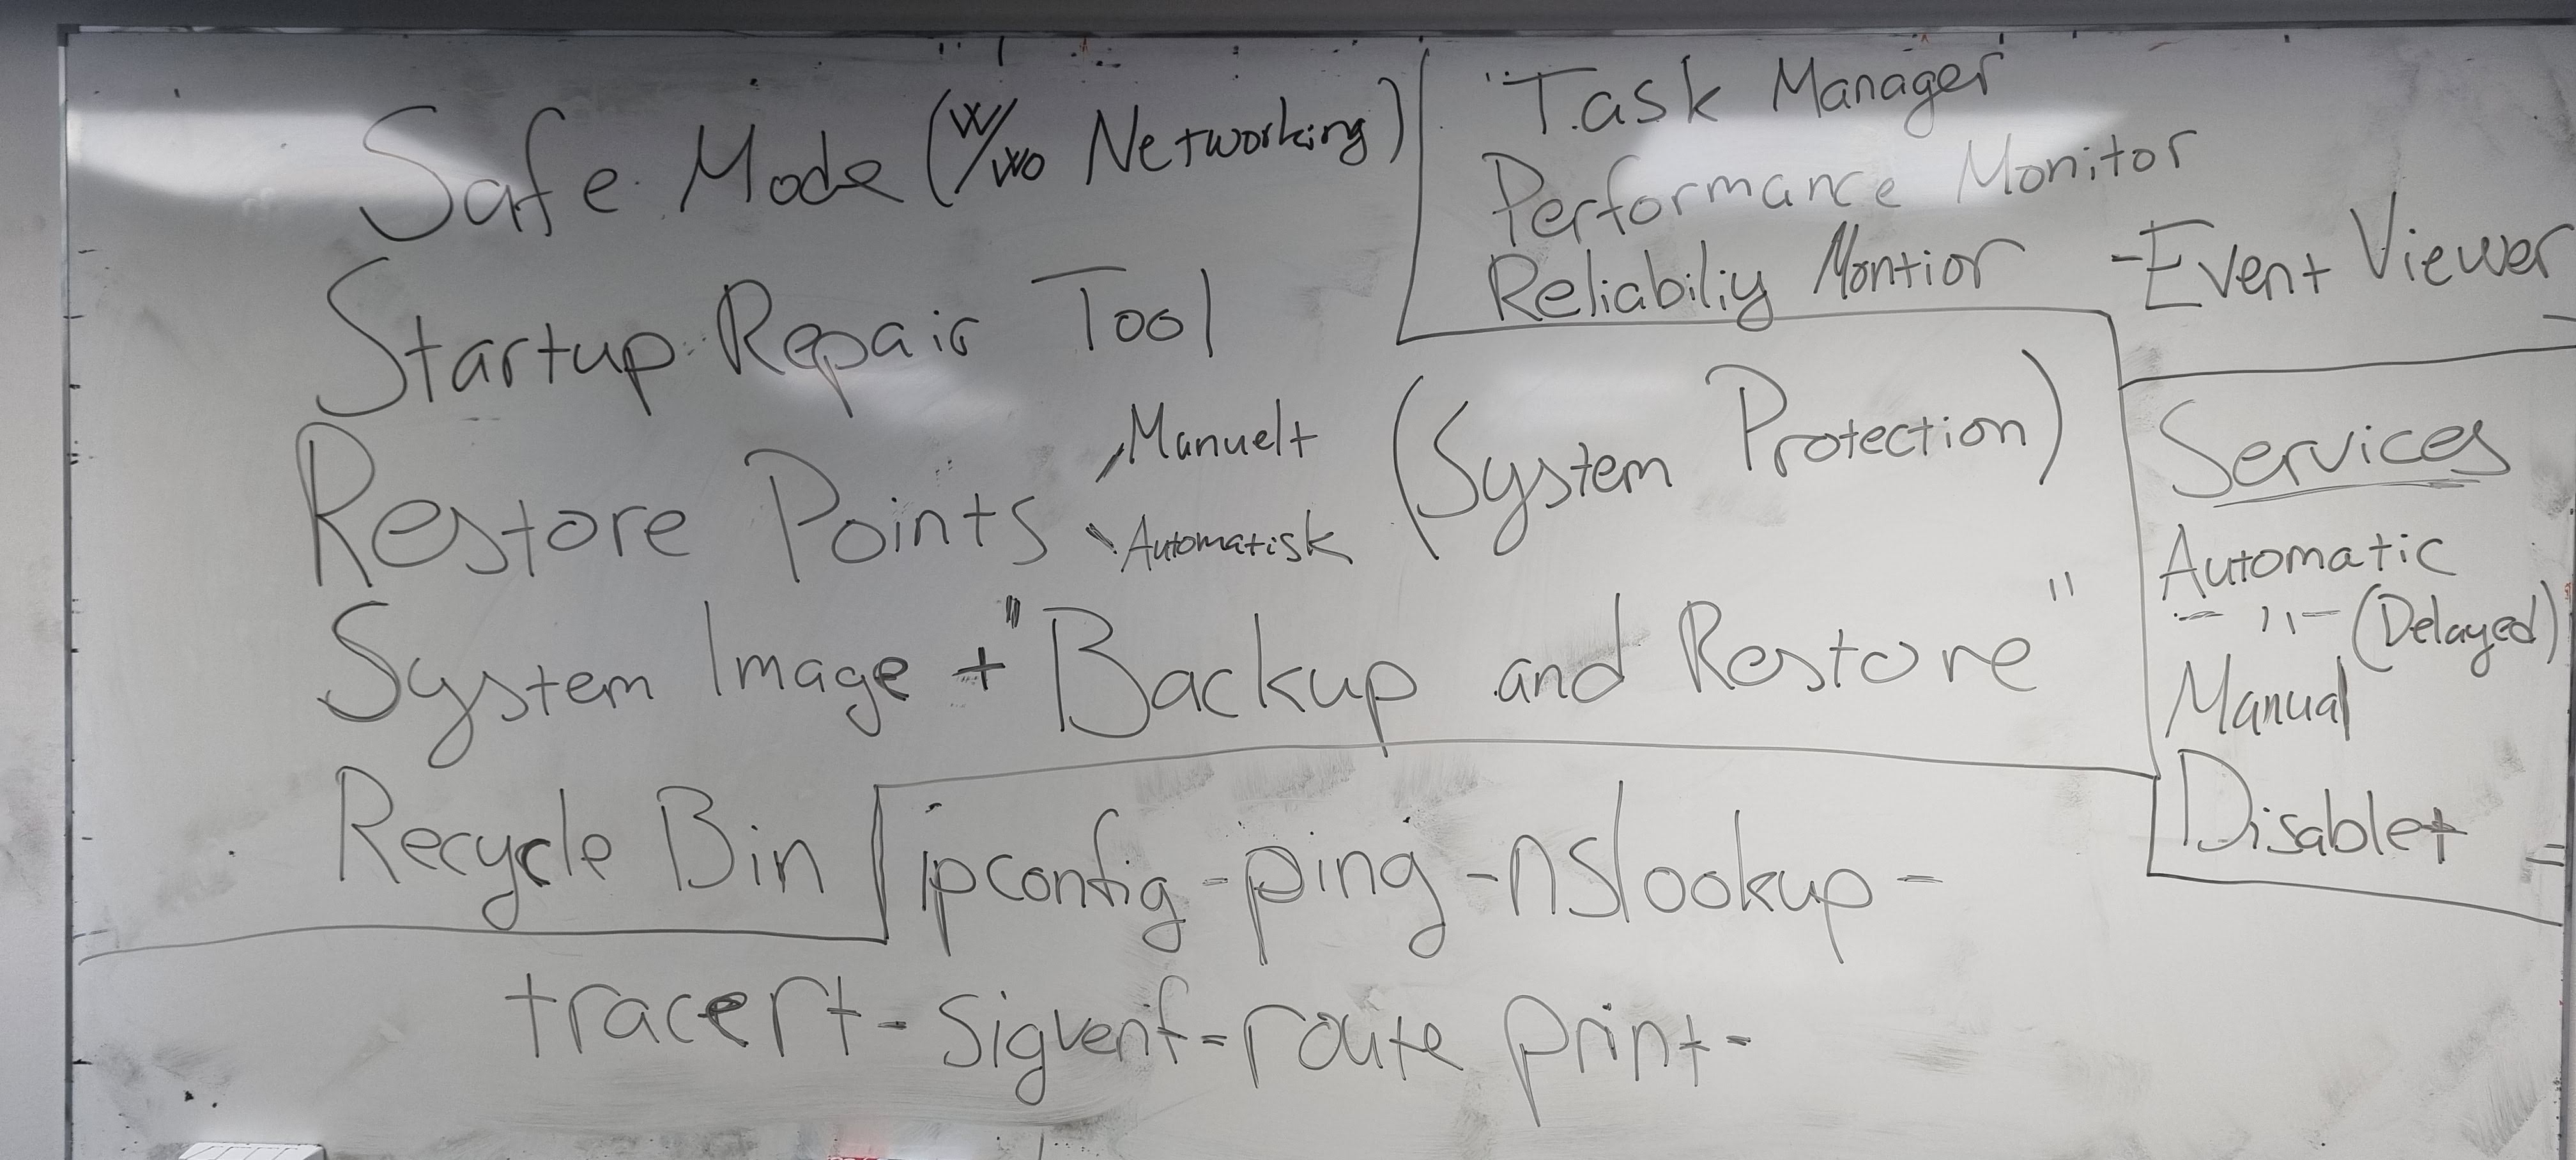 Safe Mode (w/wo Networking)
Startup Repair Tool
Restore Points
Manuelt
Automatisk
(System Protection)
System Image + "Backup and Restore"
Recycle Bin
Task Manager
Performance Monitor
Reliabiliy Montior - Event Viewer
Services
Automatic
- " - (Delayed)
Manual
Disablet
ipconfig - ping - nslookup -
tracert - sigverif - route print -